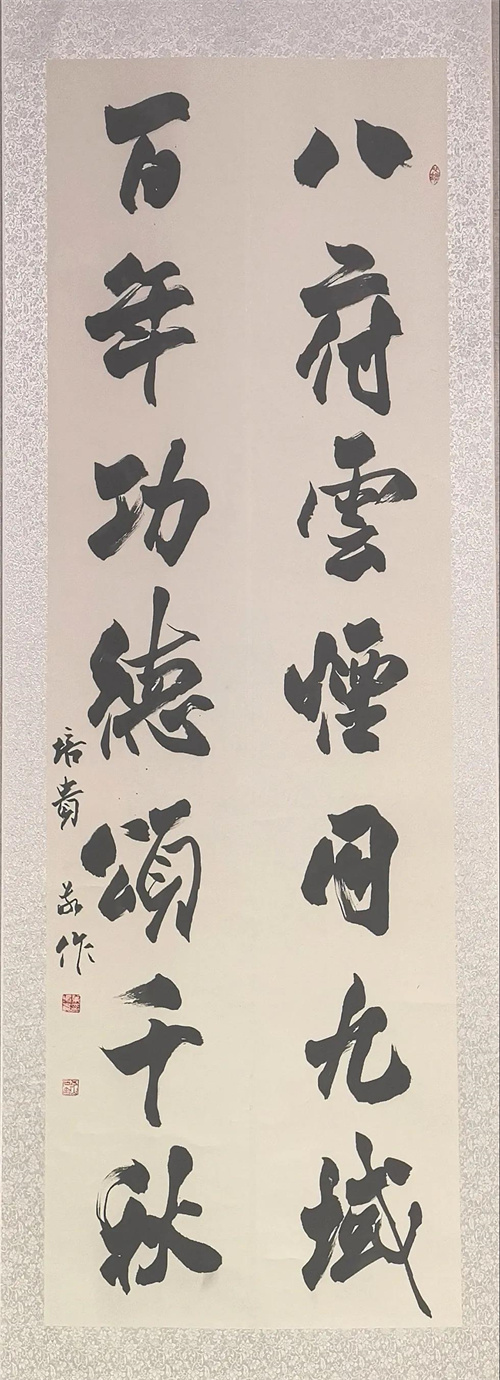 八府雲煙同九域
百年功德頌千秋
培貴 敬作